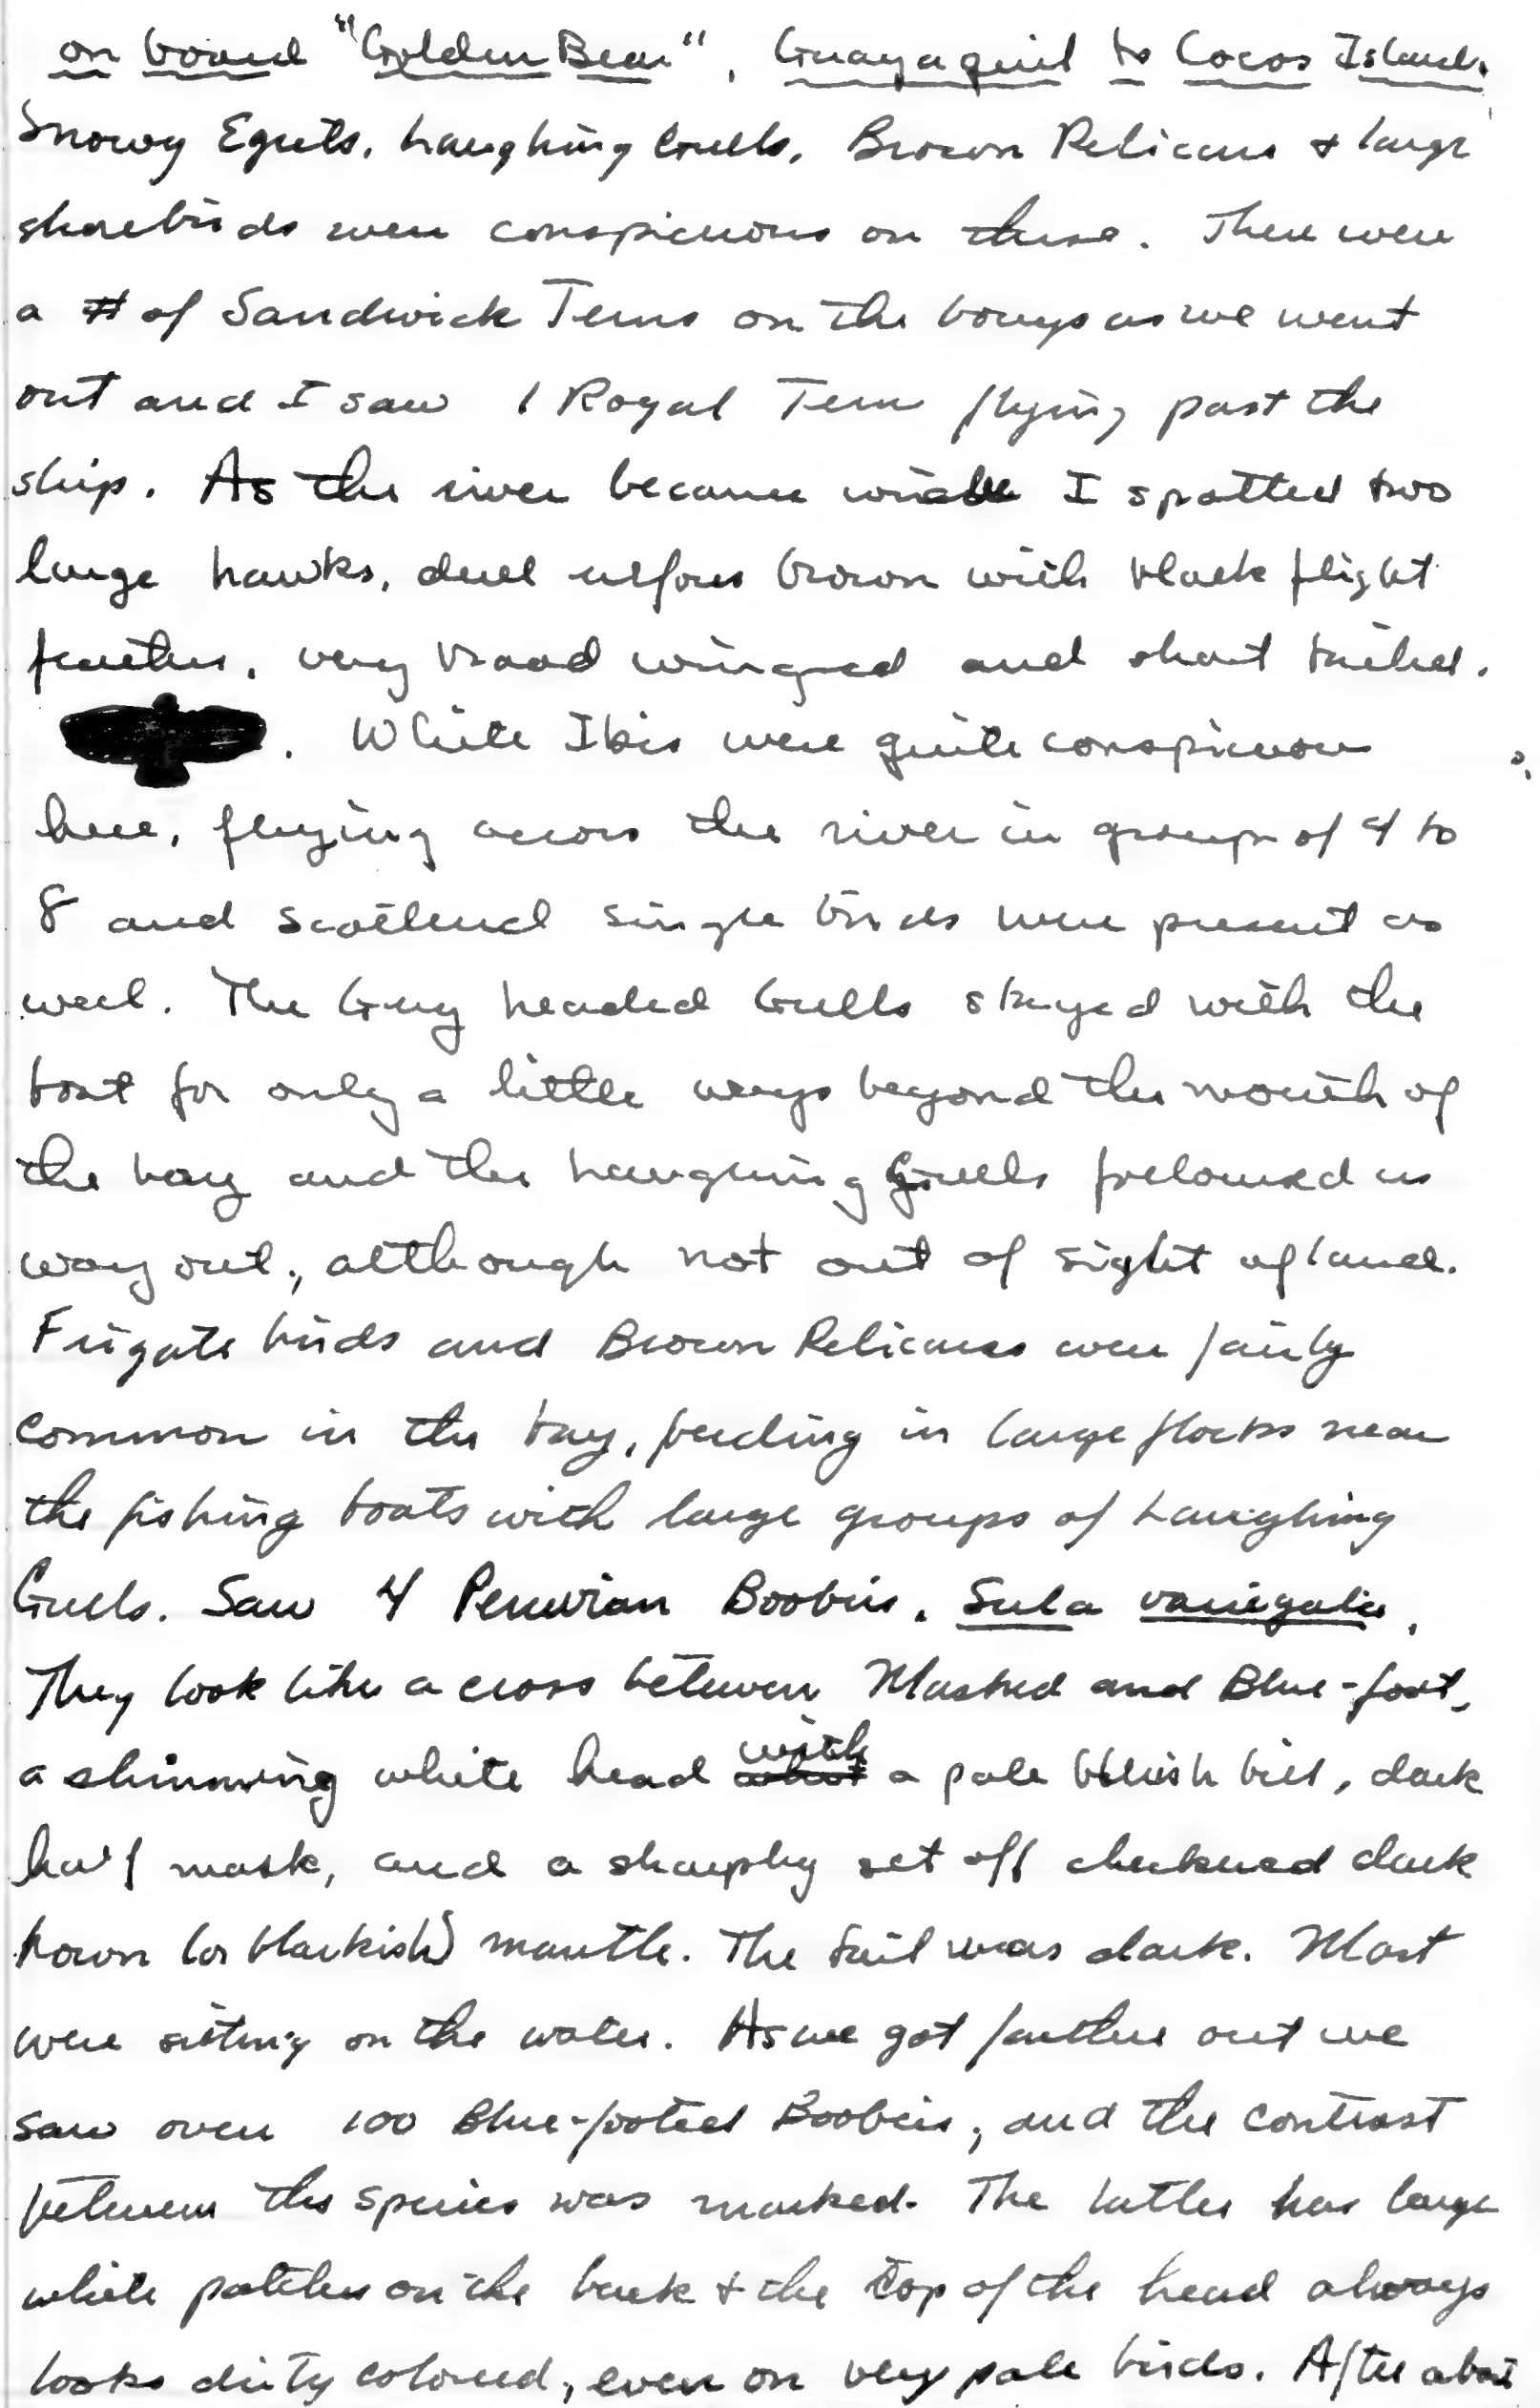 on board "Golden Bear", Guayaquil to Cocos Island.
Snowy Egrets, Laughing Gulls, Brown Pelicans & large
shorebirds were conspicuous on these. There were
a # of Sandwick Terns on the bouys as we went
out and I saw 1 Royal Tern flying past the
ship. As the river became wider I spotted two
large hawks, dull rufous brown with black flight
feathers, very broad winged and short tailed.
. White Ibis were quite conspicuous
here, flying across the river in groups of 4 to
8 and scattered single birds were present as
well. The Grey headed Gulls stayed with the
boat for only a little ways beyond the mouth of
the bay and the Laughing Gulls followed us
way out, although not out of sight of land.
Frigate birds and Brown Pelicans were fairly
common in the bay, feeding in large flocks near
the fishing boats with large groups of Laughing
Gulls. Saw 4 Peruvian Boobies, Sula variegata.
They look like a cross between Masked and Blue-foot,
a shinning white head with a pale bluish bill, dark
half mask, and a sharply set off checkered dark
brown (or blackish) mantle. The tail was dark. Most
were sitting on the water. As we got farther out we
saw over 100 Blue-footed Boobies, and the contrast
between the species was marked. The latter has large
white patches on the back & the top of the head always
looks dirty colored, even on very pale birds. After about